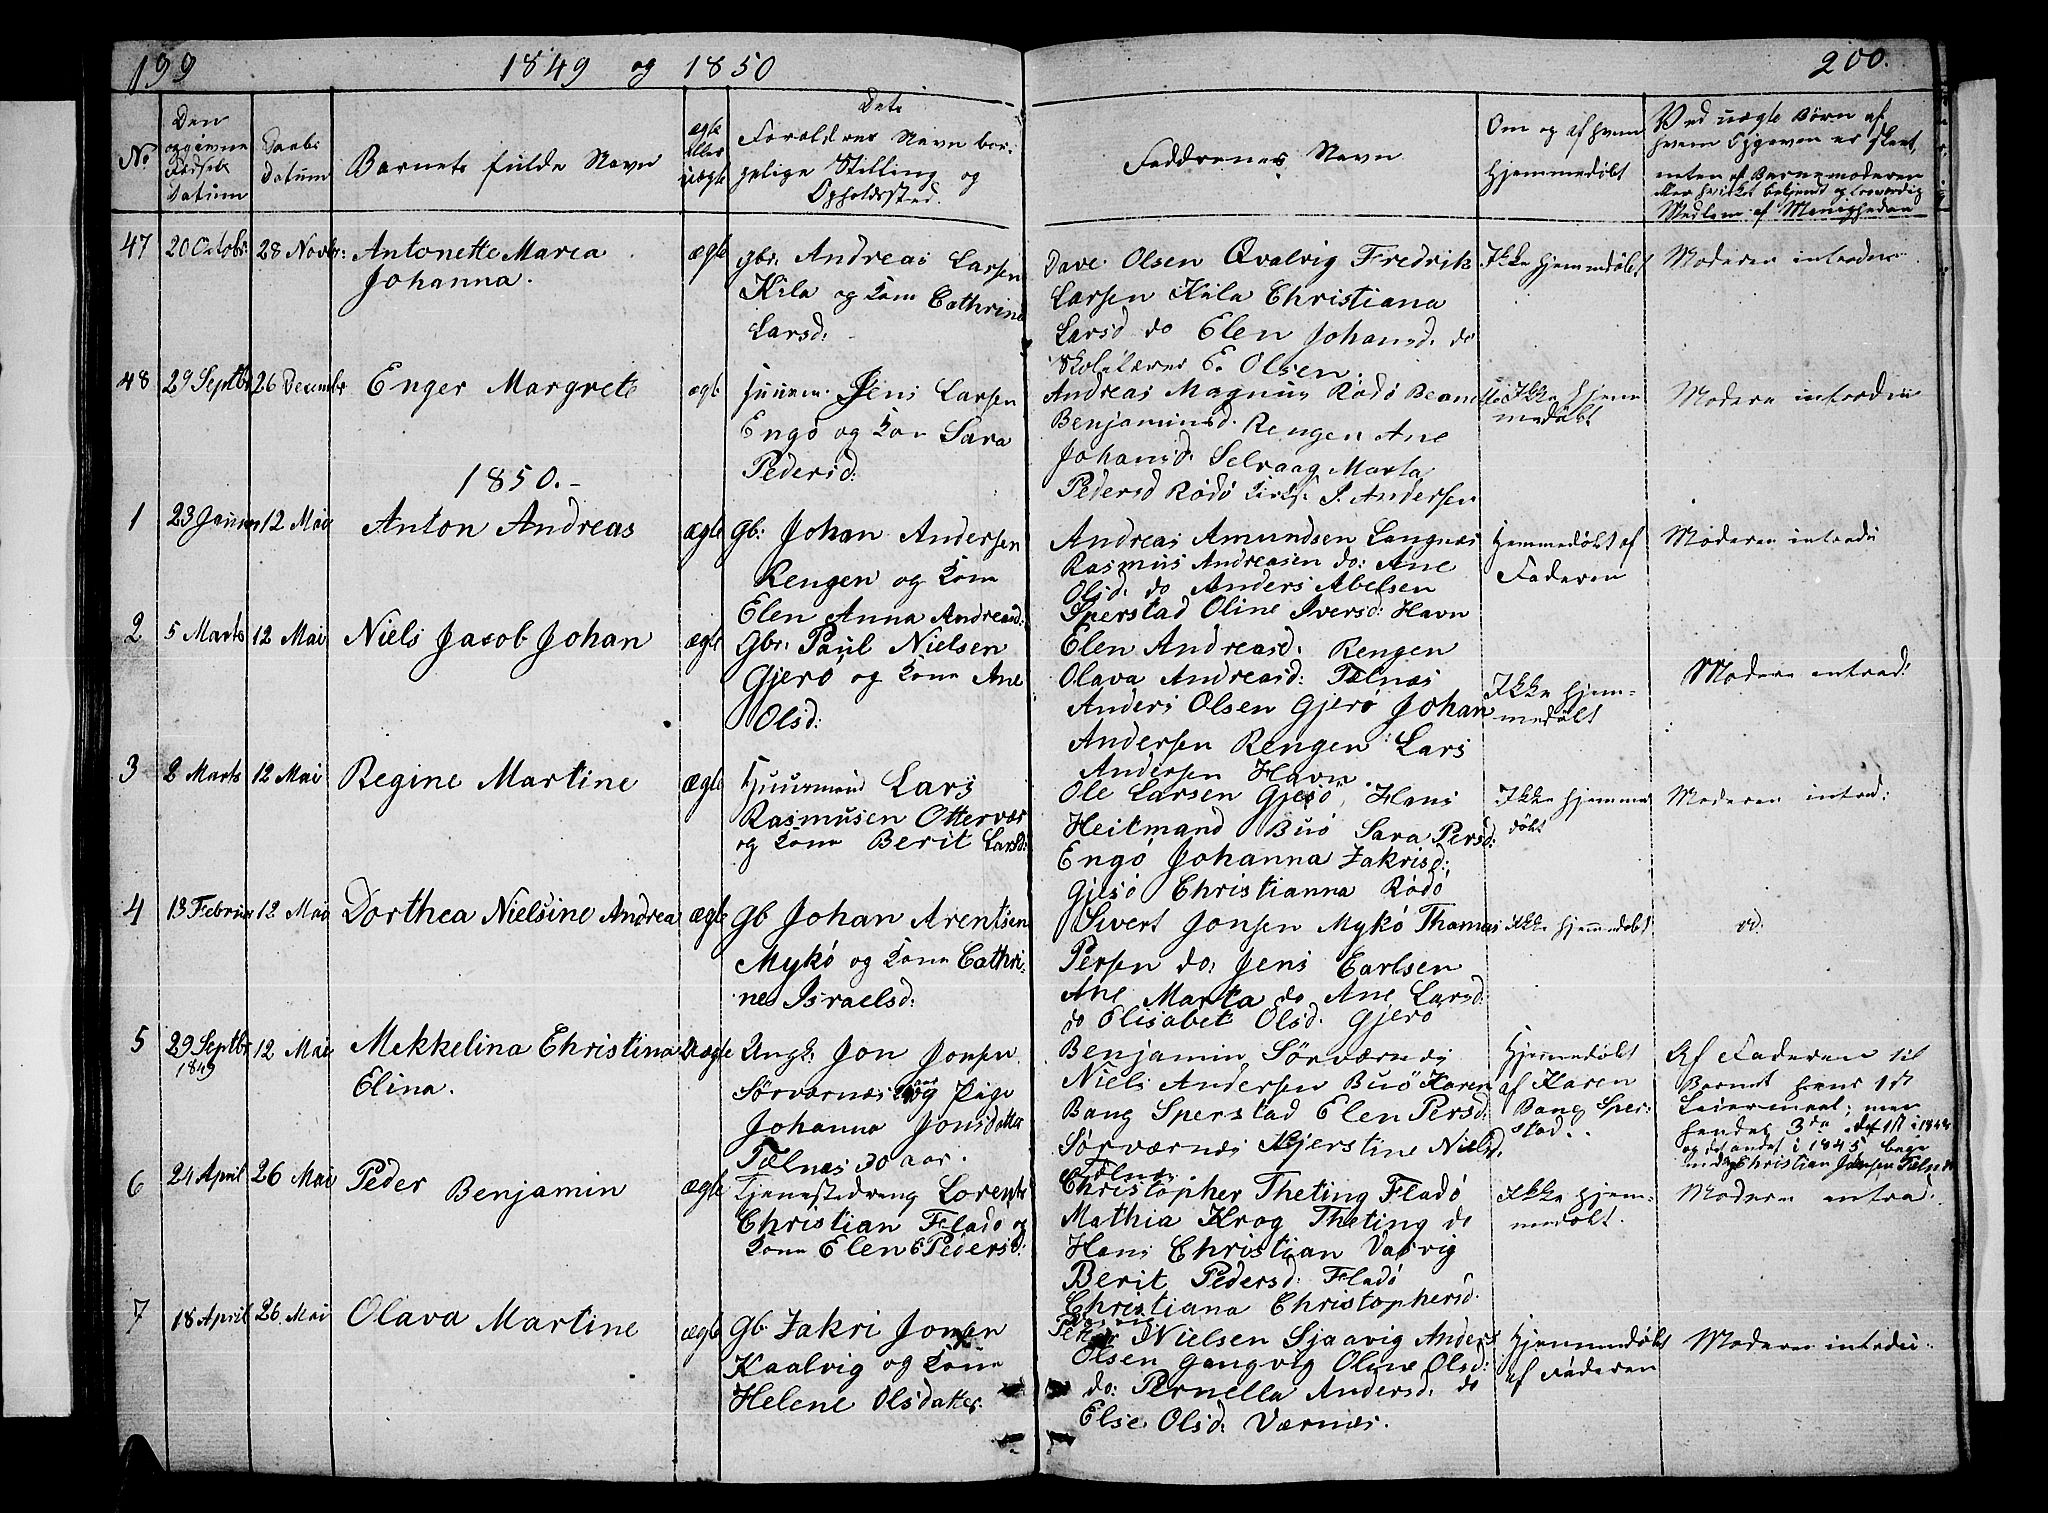 199
1849 og 1850
200.
No
Den opgivne Fødsels Datum
Daabs Datum
Barnets fulde Navn
ægte eller uægte
Dets Forældres Navn borgelige Stilling og Opholdssted.
Faddrenes Navn
Om og af hvem hjemmedøbt
Ved uægte Børn af hvem Opgaven er skeet, enten af Barnemoderen eller hvilket bekjendt og troværdig Medlem af Menigheden
47 20 Octobr 28 Novbr: Antonette Marea
Johanna.
ægte
gbr. Andreas Larsen
Kila og Kone Cathrine
Larsd:
Dave Olsen Qvalvig Fredrik
Larsen Kila Christiana
Larsd do Elen Johansd. do
Skolelærer E. Olsen.
Ikke hjemmedøbt
Moderen introdu
48 29 Septbr 26 Decembr Enger Margrete
ægte
Huusm. Jens Larsen
Engø og Kone Sara
Pedersd:
Andreas Magnus Rødø
Benjaminsd. Rengen Ane
Johansd. Selvaag Marta
Pedersd Rødø J. Andersen
Ikke hjem
medøbt
Modere introdu
1850.-
1 23 Januar 12 Mai Anton Andreas
ægte
Gb: Johan Andersen
Rengen og Kone
Elen Anna Andreasd:
Andreas Amundsen Langnæs
Rasmus Andreasen do: Ane
Olsd. do Anders Abelsen
Sperstad Oline Iversd: Havn
Hjemmedøbt af
Faderen
Moderen introdu
2 5 Marts 12 Mai Niels Jacob Johan
ægte
Gbr: Paul Nielsen
Gjerø og Kone Ane
Olsd:
Elen Andreasd. Rengen
Olava Andreasd: Tælnæs
Anders Olsen Gjerø Johan
Andersen Rengen Lars
Andersen Havn
Ikke hjem-
medøbt
Modere introd:
3 2 Marts 12 Mai Regine Martine
ægte
Huusmand Lars
Rasmusen Ottervær
og Kone Berit Larsd:
Ole Larsen Gjesø, Hans
Heitmand Buø Sara Persd:
Engø Johanna Zakrisd:
Gjesø Christianna Rødø
Ikke hjemme
døbt
Moderen introd:
4 13 Februar 12 Mai Dorthea Nielsine Andrea
ægte
Gb Johan Arentsen
Mykø og Kone Cathri-
ne Israelsd:
Sivert Jonsen Mykø Thomas
Persen do, Jens Carlsen
Ane Marta do Ane Larsd:
do Elisabet Olsd. Gjerø
Ikke hjemmedøbt
id.
5 29 Septbr 12 Mai Mekkelina Christina
1849
Elina.
Uægte
Ungk: Jon Jonsen
Sørværnæs og Pige
Johanna Jonsdatter
Tælnæs 30 aar.
Benjamin Sørværnes
Niels Andersen Buø Karen
Bang Sperstad Elen Persd:
Sørværnes Kjerstine Nielsd.
Tælnæs
Hjemmedøbt
af Karen
Bang Sper-
stad.
Af Faderen til
Barnet hans 1st
Leiermaal; men
hendes 3die
og det andet i 1845 begge
med Christian Jensen Tælnæs
6 24 April 26 Mai Peder Benjamin
ægte
Tjenestedreng Lorents
Christian Fladø og
Kone Elen Pedersd:
Christopher Theting Fladø
Mathia Krog Theting do
Hans Christian Varvig
Berit Pedersd: Fladø
Christiana Christophersd.
Ikke hjem-
medøbt.
Moderen introd.
7 18 April 26 Mai Olava Martine
ægte
Gb. Zakri Jonsen
Kaalvig og Kone
Helene Olsdatter.
Peter Nielsen Sjaavig Anders
Olsen Gangvig Oline Olsd:
do: Pernella Andersd. do
Else Olsd. Værnæs.
Hjemmedøbt
af Faderen
Moderen introdu: